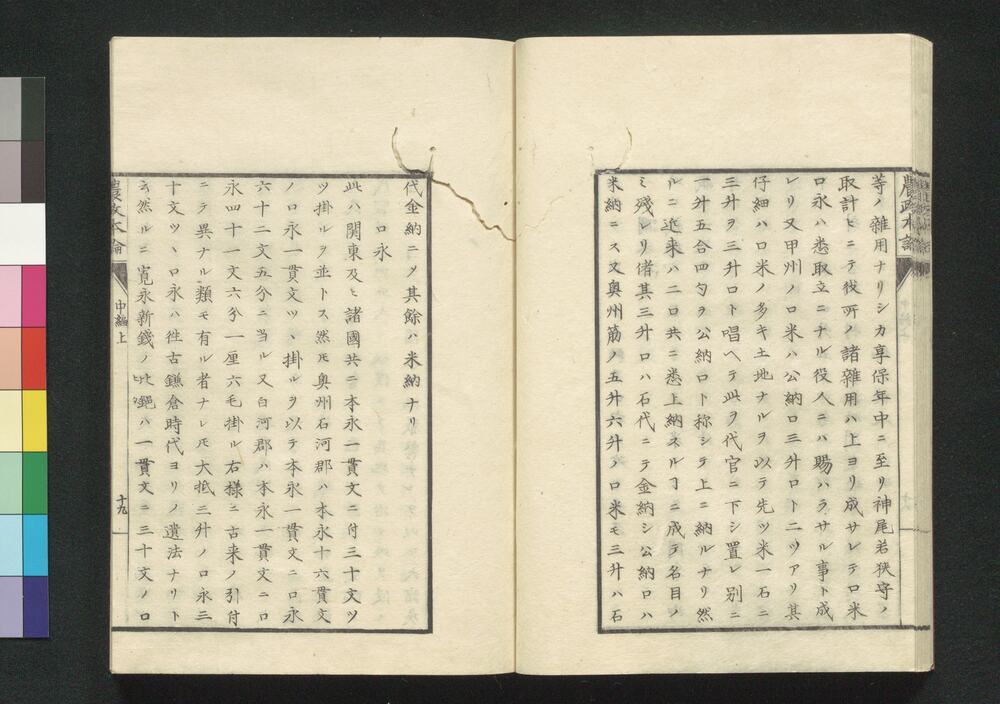 農政本論
等ノ雜用ナリシカ享保年中ニ至リ神尾若狹守ノ
取計ヒニテ役所ノ諸雜用ハ上ヨリ成サレテ口米
口永ハ悉取立ニナル役人ニハ賜ハラサル事ト成
レリ又甲州ノ口米ハ公納口三升口ト二ツアリ其
仔細ハ口米ノ多キ土地ナルヲ以テ先ツ米一石ニ
三升ヲ三升口ト唱ヘテ此ヲ代官ニ下シ置レ別ニ
一升五合四勺ヲ公納口ト称シテ上ニ納ルナリ然
ルニ近来ハ二口共ニ悉上納スルヿニ成テ名目ノ
ミ殘レリ偖其三升口ハ石代ニテ金納シ公納口ハ
米納ニス又奥州筋ノ五升六升ノ口米モ三升ハ石
代金納ニメ其餘ハ米納ナリ
口永
此ハ関東及ヒ諸國共ニ本永一貫文ニ付三十文ツ
ツ掛ルヲ並トス然𪜈奥州石河郡ハ本永十六貫文
ノ口永一貫文ツヽ掛ルヲ以テ本永一貫文ニ口永
六十二文五分ニ当ル又白河郡ハ本永一貫文ニ口
永四十一文六分一厘六毛掛ル右様ニ古来ノ引付
ニテ異ナル類モ有ル者ナレ𪜈大抵三升ノ口永三
十文ツヽ口永ハ徃古鎌倉時代ヨリノ遺法ナリト
云然ルニ寛永新錢ノ比ヒ鐚ハ一貫文ニ三十文ノ口
農政本論
中編上
十九